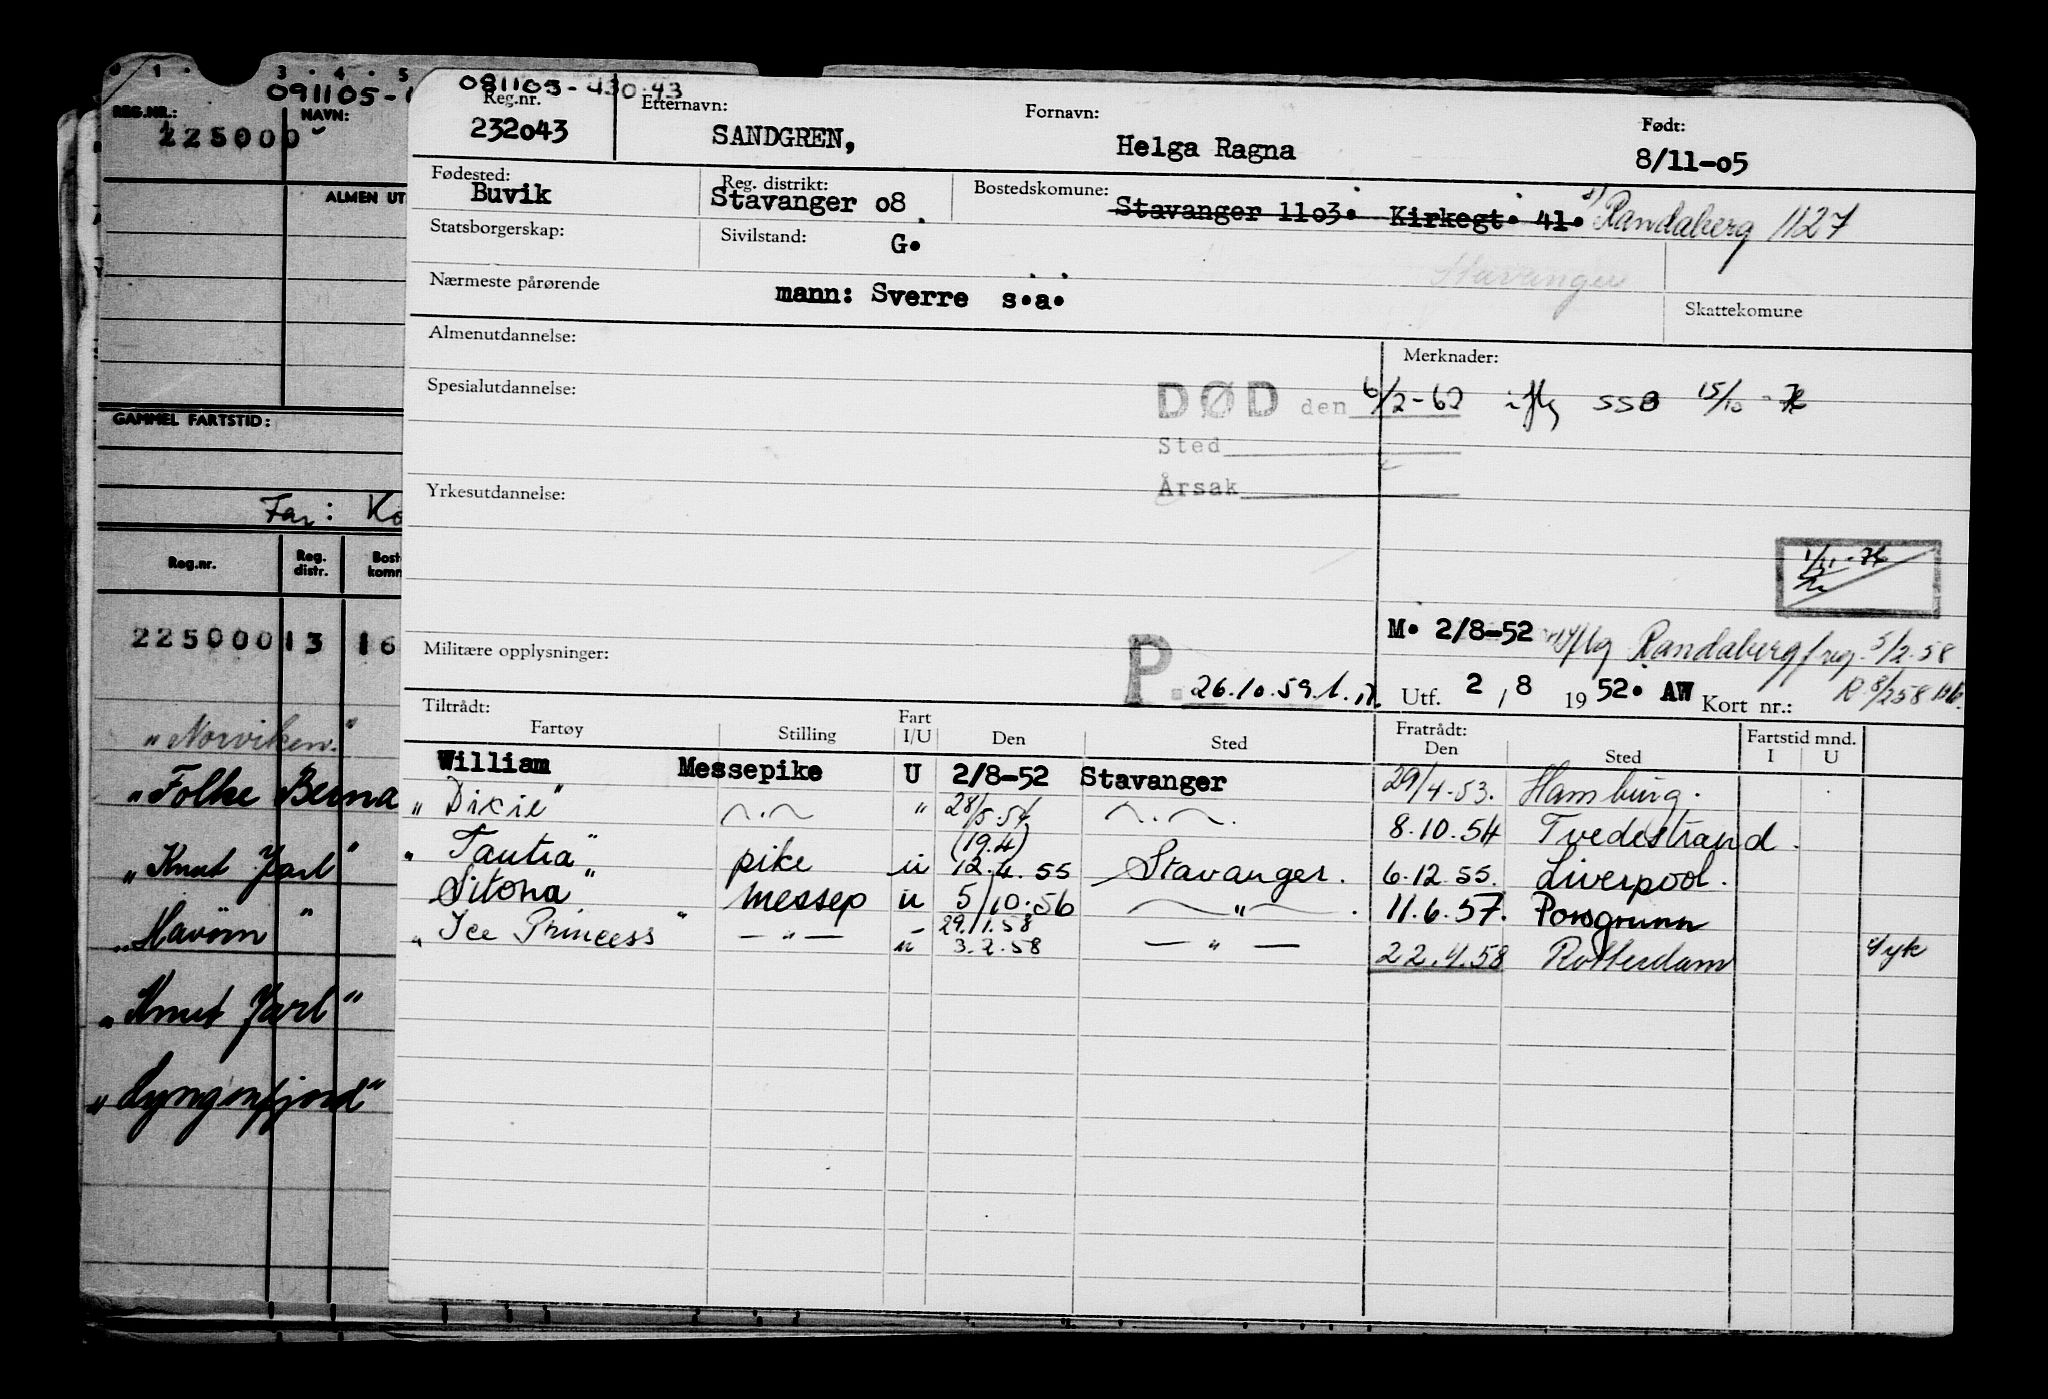 1 · 3 · 4 · 5
091105-
REG.NR.: NAVN:
225000
ALMEN UT
GAMMEL FARTSTID:
Far: Ko
Reg.nr. Reg. distr. Bost komm
225000 13 16
"Norviken"
"Folke Berna
"Knut Jarl"
"Havörn"
"Knut Jarl"
"Lyngenfjord"
081105-430.43
Reg.nr. Etternavn: Fornavn: Født:
232043 SANDGREN, Helga Ragna 8/11-05
Fødested: Reg. distrikt: Bostedskomune:
Buvik Stavanger 08 Stavanger 1103. Kirkegt. 41. Randaberg 1127
Statsborgerskap: Sivilstand: G.
Stavanger
Nærmeste pårørende mann: Sverre s.a. Skattekomune
Almenutdannelse: Merknader:
Spesialutdannelse: DØD den 6/2-62 iflg SSB 15/10-
Sted
Årsak
Yrkesutdannelse:
1/11-76
M. 2/8-52 iflg Randaberg f/reg. 5/2.58
Militære opplysninger: P. 26.10.59.
Utf. 2 / 8 1952. AW Kort nr.: R 8/2 58
Tiltrådt: Fartøy Stilling Fart I/U Den Sted Fratrådt: Den Sted Fartstid mnd. I U
William Messepike U 2/8-52 Stavanger 29/4-53. Hamburg.
"Dixie" —.— " 28/5.54 —.—. 8.10.54 Tvedestrand.
"Tautra" pike u (19.4) 12.4.55 Stavanger. 6.12.55. Liverpool.
Sitona" messep u 5/10.56 — " —. 11.6.57. Porsgrunn
"Ice Princess" — " — - 29.1.58
u 3.2.58 — " — 22.4.58 Rotterdam syk